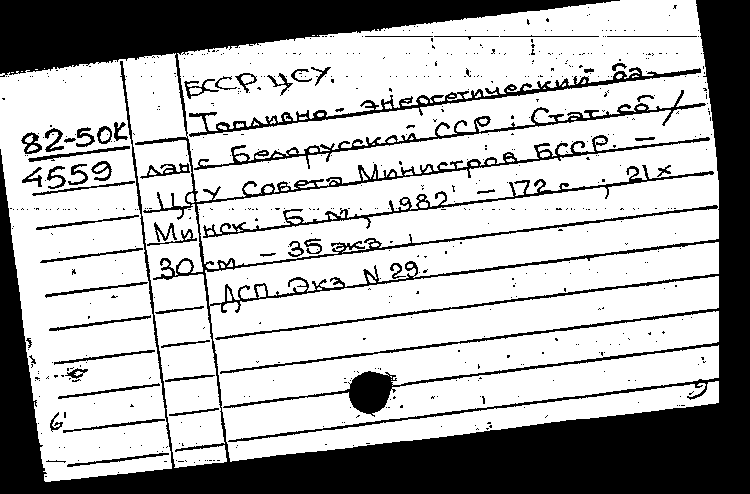 БССР. ЦСУ.
82-50К
4559
Топливно-энергетический ба-
ланс Белорусской ССР : Стат. сб. /
ЦСУ Совета Министров БССР. —
Минск : Б. и., 1982. — 172 с. ; 21 х
30 см. — 35 экз.
ДСП. Экз N 29.
6